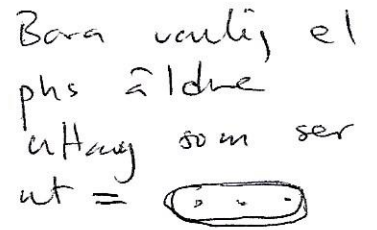 Bara vanlig el
plus äldre
uttag som ser
ut =